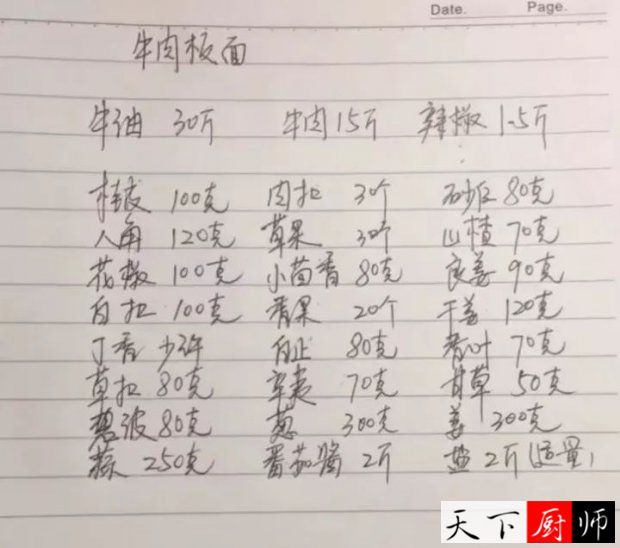 Date. Page.
牛肉板面
牛油 30斤 牛肉 15斤 辣椒 1.5斤
桂皮 100克 肉扣 30个 砂仁 80克
八角 120克 草果 30个 山楂 70克
花椒 100克 小茴香 80克 良姜 90克
白扣 100克 香果 20个 干姜 120克
丁香 少许 白止 80克 香叶 70克
草扣 80克 辛夷 70克 甘草 50克
荜波 80克 葱 300克 姜 300克
蒜 250克 番茄酱 2斤 盐 2斤(适量)
天下厨师